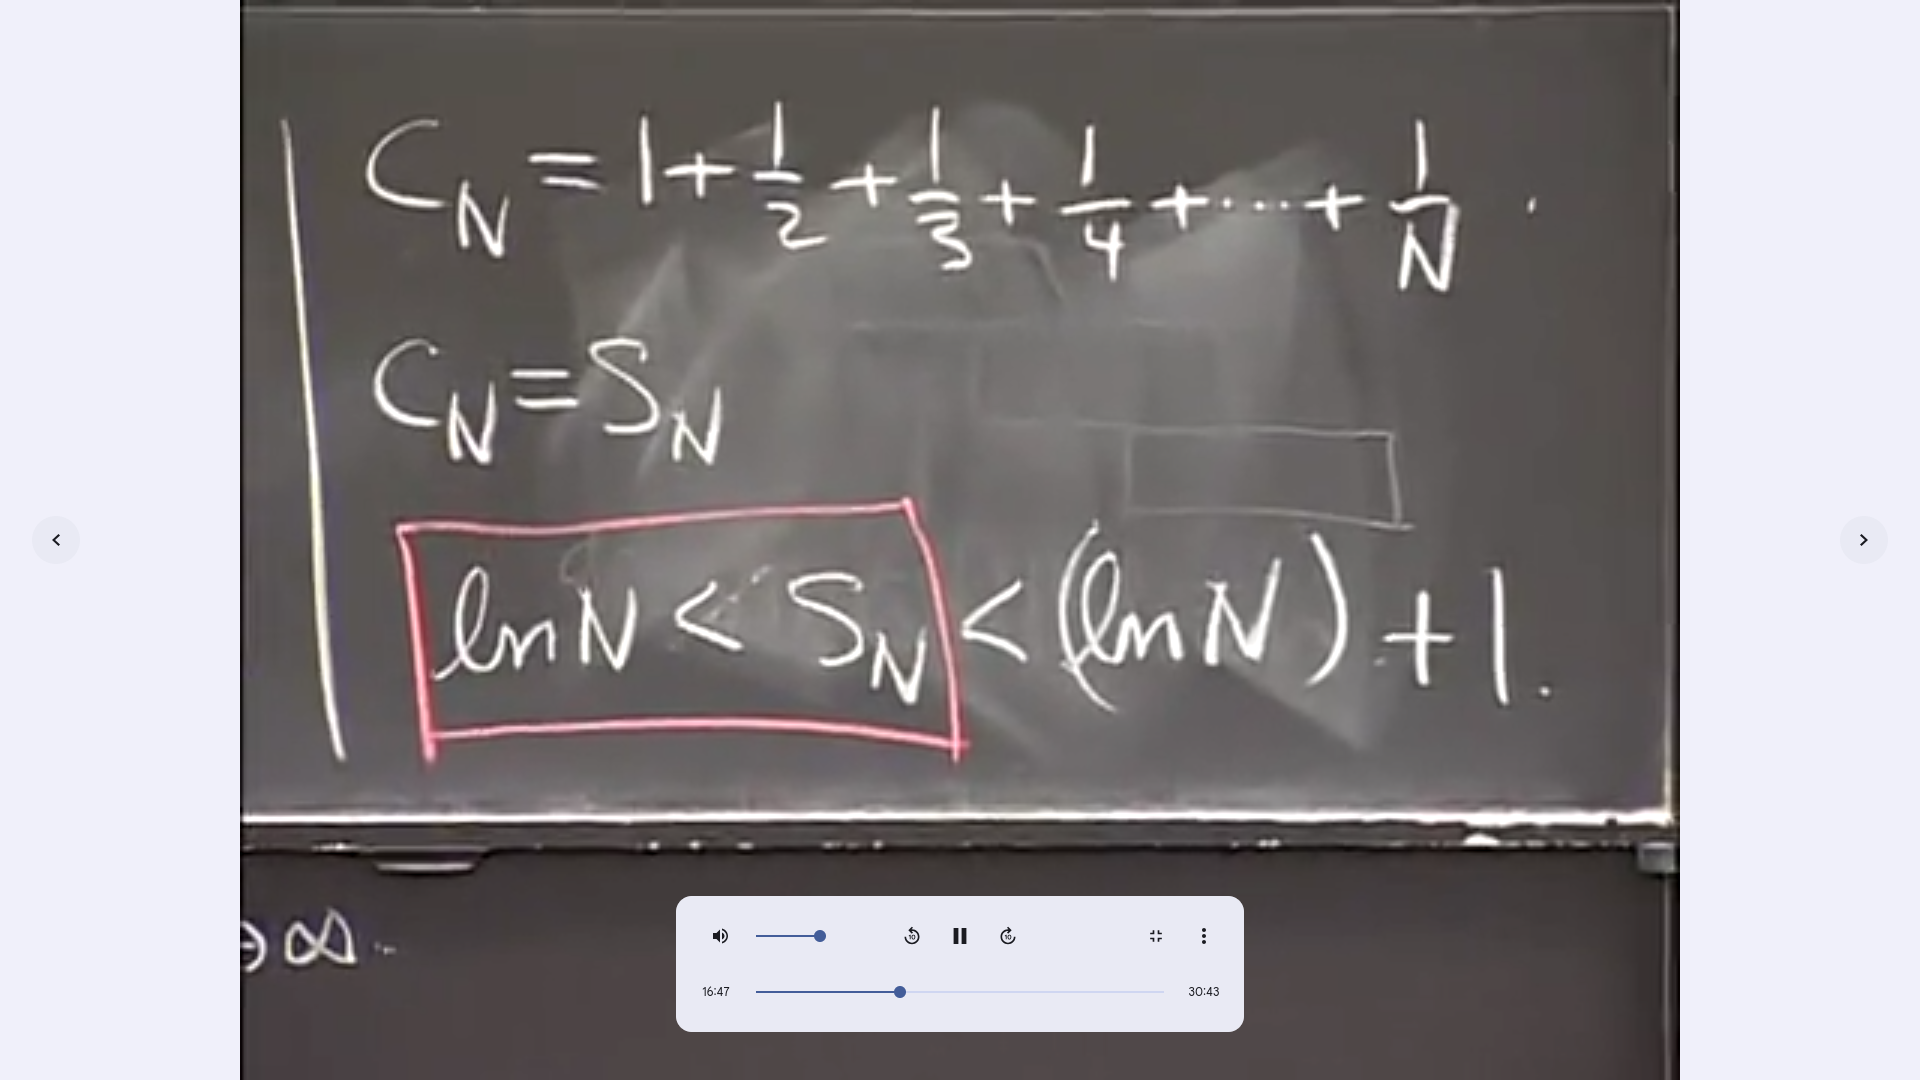 C_N = 1 + 1/2 + 1/3 + 1/4 + ... + 1/N .
C_N = S_N
ln N < S_N < (ln N) + 1.
∞
10
10
16:47
30:43